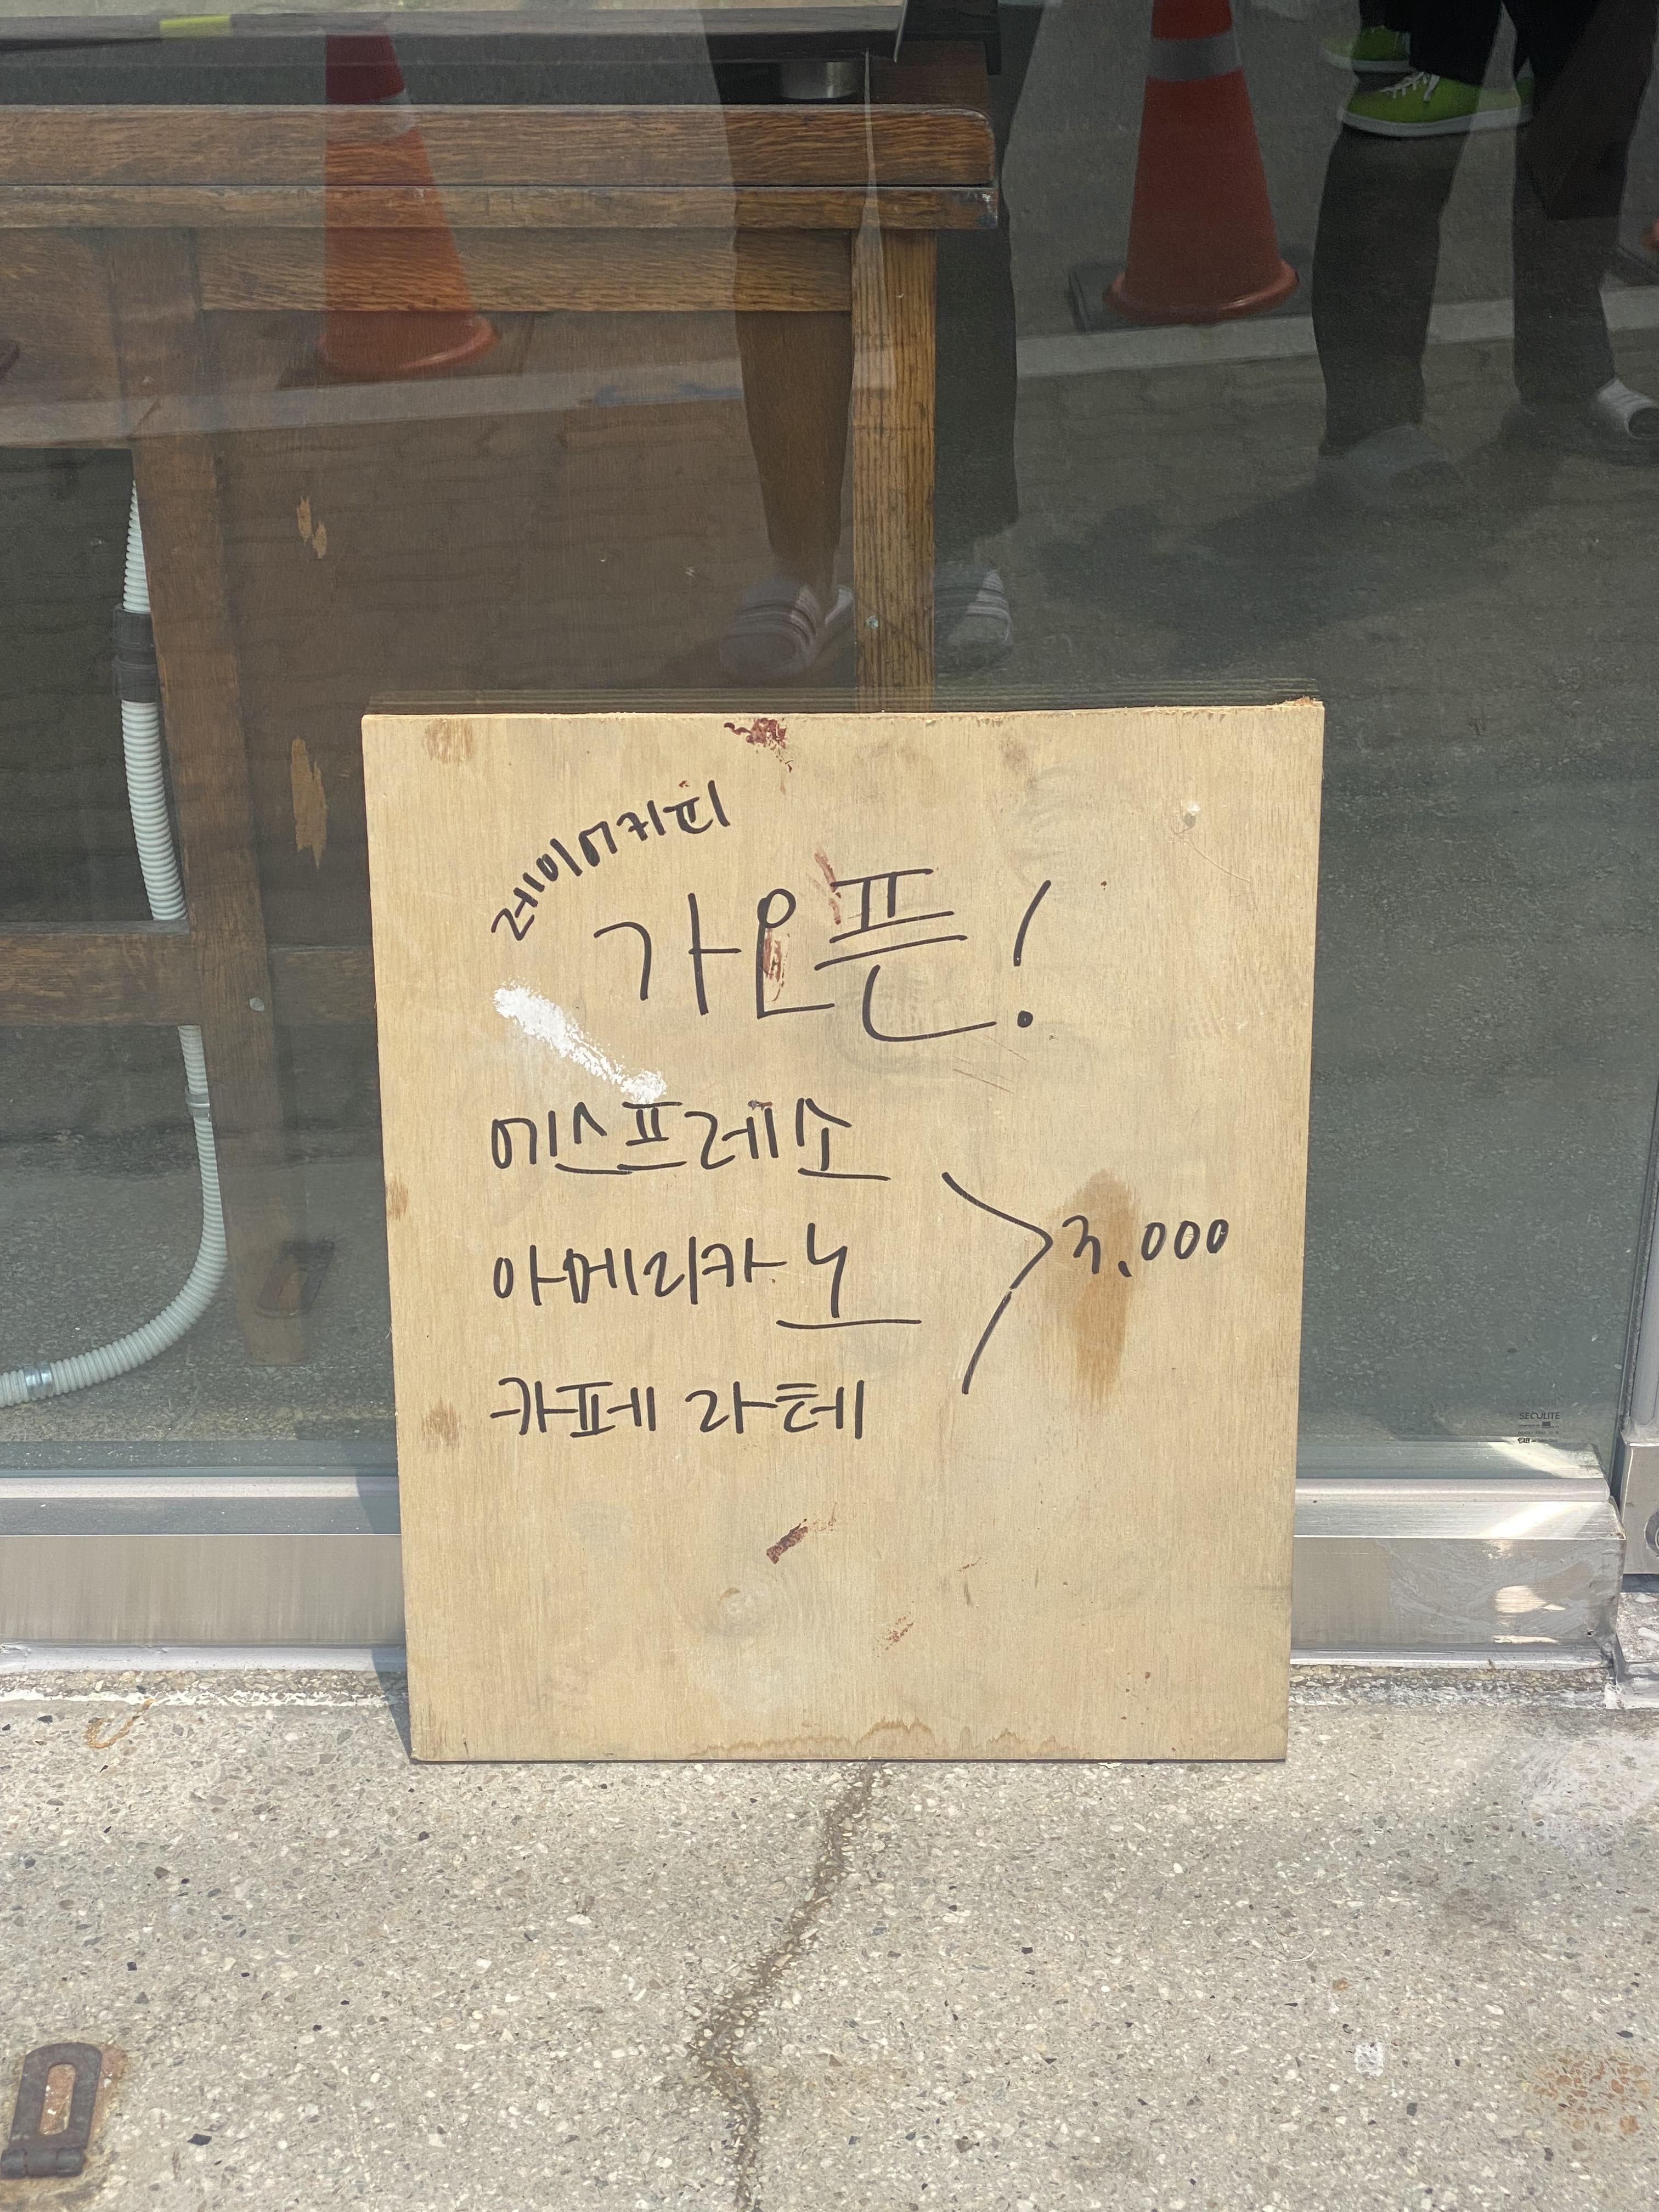 레이어커피
가오픈!
에스프레소
아메리카노
카페 라테
3,000
SECULITE